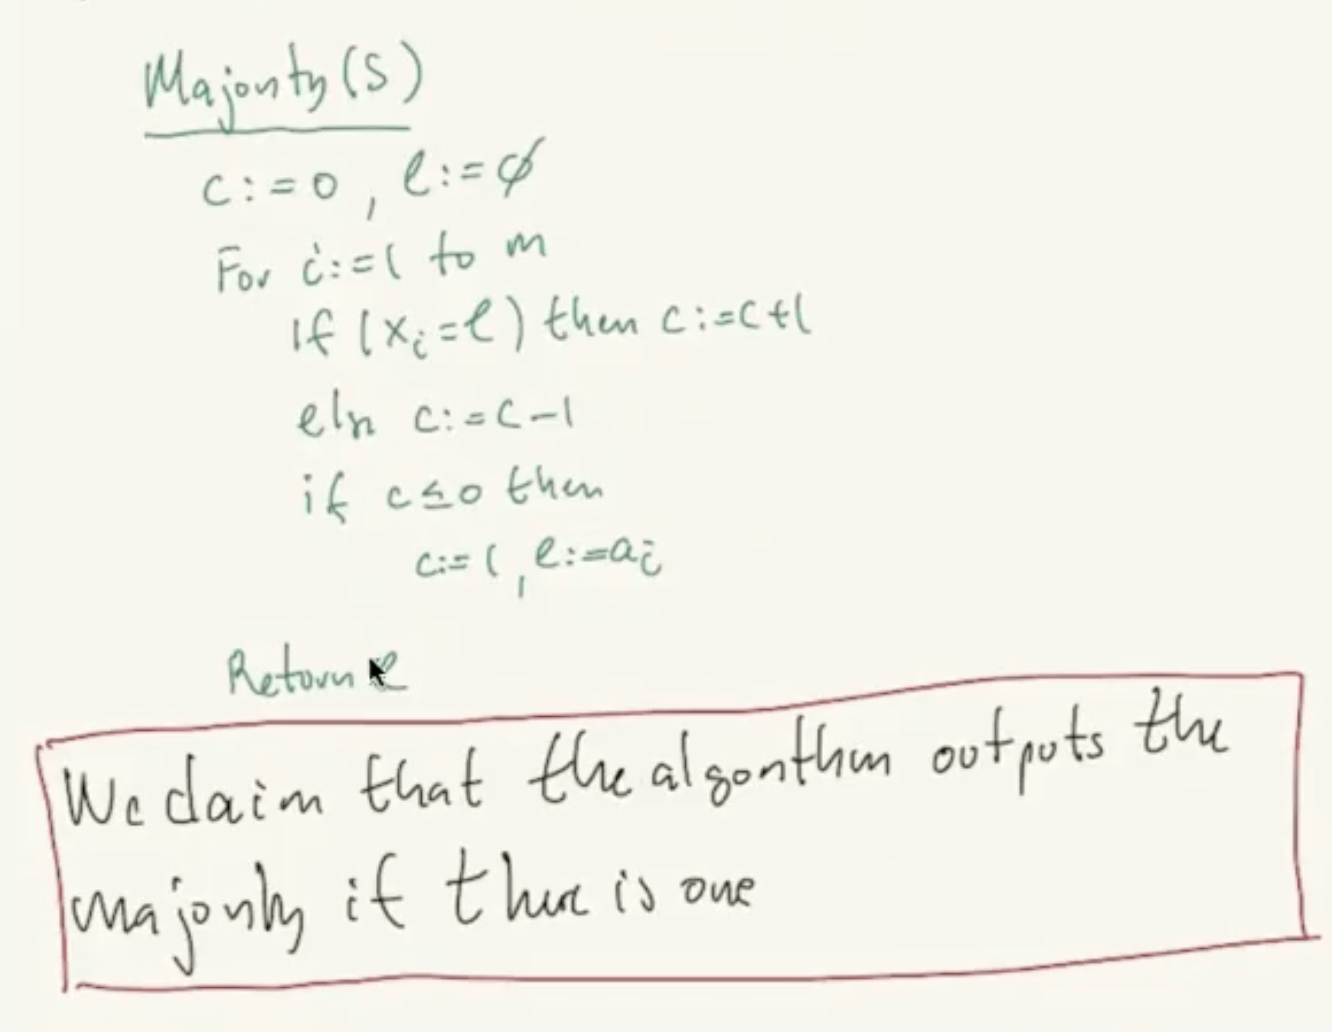 Majority(S)
c:=0, l:=∅
For i:=1 to m
if (xᵢ=l) then c:=c+1
else c:=c-1
if c≤0 then
c:=1, l:=aᵢ
Return l
We claim that the algorithm outputs the
majority if there is one